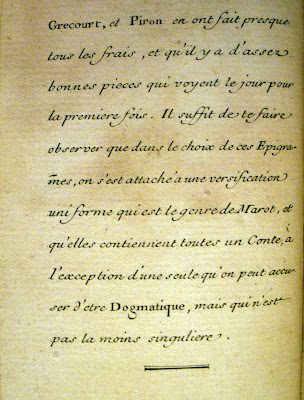 Grecourt, et Piron en ont fait presque
tous les frais, et qu'il y a d'assez
bonnes pieces qui voyent le jour pour
la premiere fois. Il suffit de te faire
observer que dans le choix de ces Epigra-
m̄es, on s'est attaché a une versification
uniforme qui est le genre de Marot, et
qu'elles contiennent toutes un Conte, à
l'exception d'une seule qu'on peut accu-
ser d'etre Dogmatique, mais qui n'est
pas la moins singuliere.